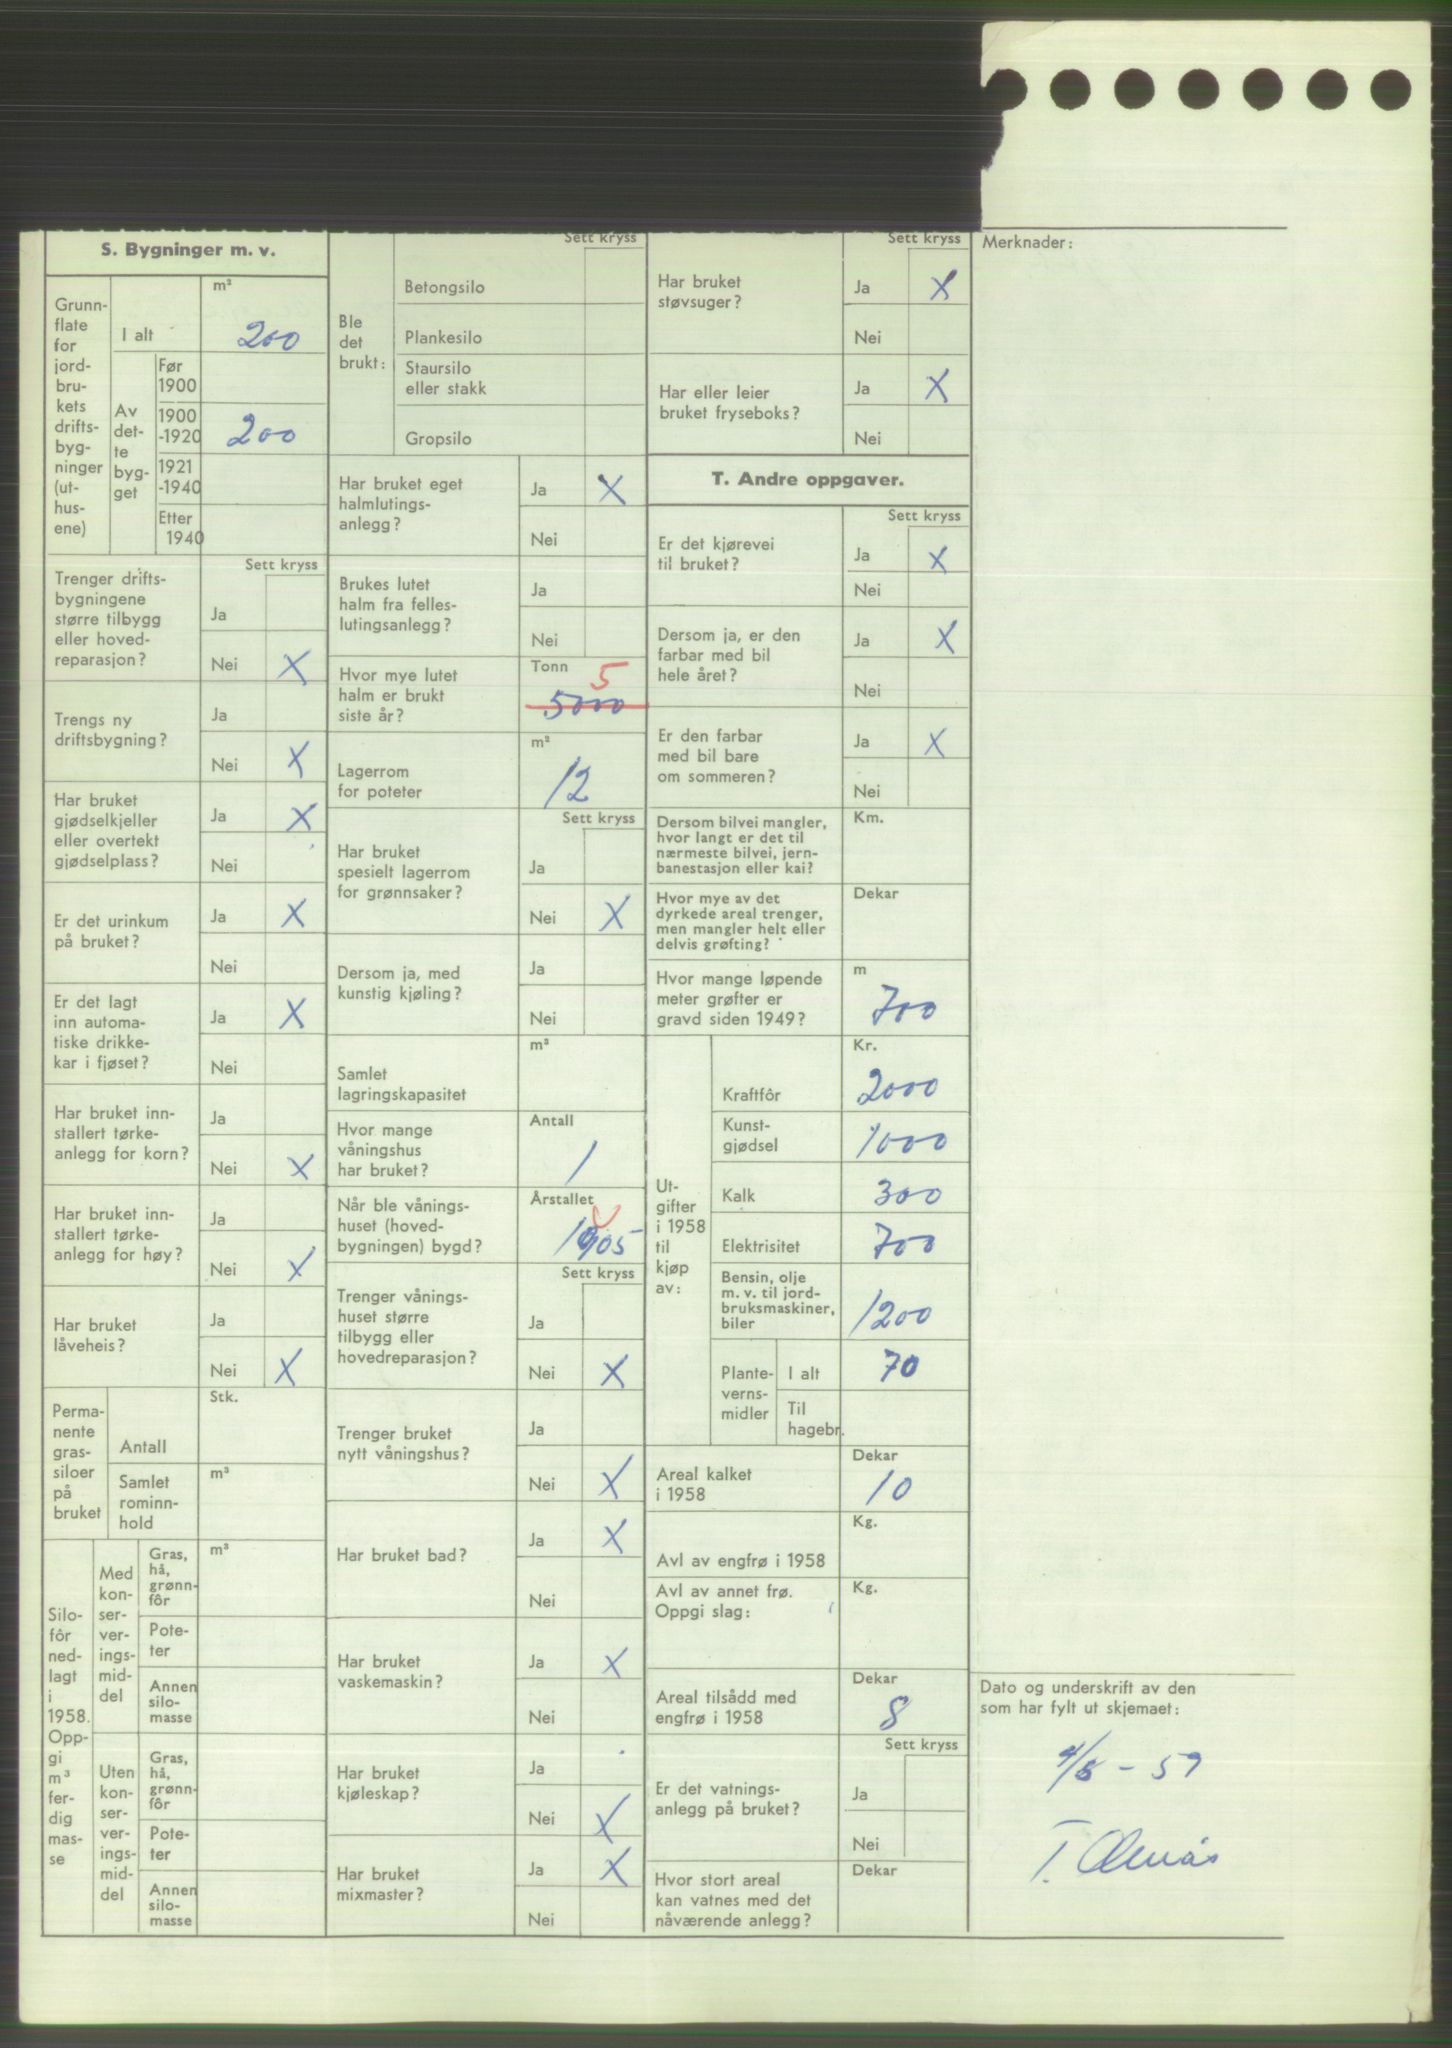 S. Bygninger m. v.
Grunn-
flate
for
jord-
bru-
kets
drifts-
byg-
ninger
(ut-
hus-
ene)
m²
I alt 200
Av
det-
te
byg-
get
Før
1900
1900
-1920 200
1921
-1940
Etter
1940
Sett kryss
Trenger drifts-
bygningene
større tilbygg
eller hoved-
reparasjon?
Ja
Nei X
Trengs ny
driftsbygning?
Ja
Nei X
Har bruket
gjødselkjeller
eller overtekt
gjødselplass?
Ja X
Nei
Er det urinkum
på bruket?
Ja X
Nei
Er det lagt
inn automa-
tiske drikke-
kar i fjøset?
Ja X
Nei
Har bruket inn-
stallert tørke-
anlegg for korn?
Ja
Nei X
Har bruket inn-
stallert tørke-
anlegg for høy?
Ja
Nei X
Har bruket
låveheis?
Ja
Nei X
Perma-
nente
gras-
siloer
på
bruket
Stk.
Antall
Samlet
rominn-
hold
m³
Silo-
fôr
ned-
lagt
i
1958.
Opp-
gi
m³
fer-
dig
mas-
se
Med
kon-
ser-
ver-
ings-
mid-
del
Gras,
hå,
grønn-
fôr
m³
Pote-
ter
Annen
silo-
masse
Uten
kon-
ser-
ver-
ings-
mid-
del
Gras,
hå,
grønn-
fôr
Pote-
ter
Annen
silo-
masse
Sett kryss
Ble
det
brukt:
Betongsilo
Plankesilo
Staursilo
eller stakk
Gropsilo
Har bruket eget
halmlutings-
anlegg?
Ja X
Nei
Brukes lutet
halm fra felles-
lutingsanlegg?
Ja
Nei
Hvor mye lutet
halm er brukt
siste år?
Tonn
5
5000
Lagerrom
for poteter
m²
12
Sett kryss
Har bruket
spesielt lagerrom
for grønnsaker?
Ja
Nei X
Dersom ja, med
kunstig kjøling?
Ja
Nei
Samlet
lagringskapasitet
m³
Hvor mange
våningshus
har bruket?
Antall
1
Når ble vånings-
huset (hoved-
bygningen) bygd?
Årstallet
1905
Sett kryss
Trenger vånings-
huset større
tilbygg eller
hovedreparasjon?
Ja
Nei X
Trenger bruket
nytt våningshus?
Ja
Nei X
Har bruket bad?
Ja X
Nei
Har bruket
vaskemaskin?
Ja X
Nei
Har bruket
kjøleskap?
Ja
Nei X
Har bruket
mixmaster?
Ja X
Nei
Sett kryss
Har bruket
støvsuger?
Ja X
Nei
Har eller leier
bruket fryseboks?
Ja X
Nei
T. Andre oppgaver.
Sett kryss
Er det kjørevei
til bruket?
Ja X
Nei
Dersom ja, er den
farbar med bil
hele året?
Ja X
Nei
Er den farbar
med bil bare
om sommeren?
Ja X
Nei
Dersom bilvei mangler,
hvor langt er det til
nærmeste bilvei, jern-
banestasjon eller kai?
Km.
Hvor mye av det
dyrkede areal trenger,
men mangler helt eller
delvis grøfting?
Dekar
Hvor mange løpende
meter grøfter er
gravd siden 1949?
m
700
Ut-
gifter
i 1958
til
kjøp
av:
Kr.
Kraftfôr 2000
Kunst-
gjødsel 1000
Kalk 300
Elektrisitet 700
Bensin, olje
m. v. til jord-
bruksmaskiner,
biler 1200
Plante-
verns-
midler
I alt 70
Til
hagebr.
Areal kalket
i 1958
Dekar
10
Avl av engfrø i 1958
Kg.
Avl av annet frø.
Oppgi slag:
Kg.
Areal tilsådd med
engfrø i 1958
Dekar
8
Sett kryss
Er det vatnings-
anlegg på bruket?
Ja
Nei
Hvor stort areal
kan vatnes med det
nåværende anlegg?
Dekar
Merknader:
Dato og underskrift av den
som har fylt ut skjemaet:
4/6 - 59
T.